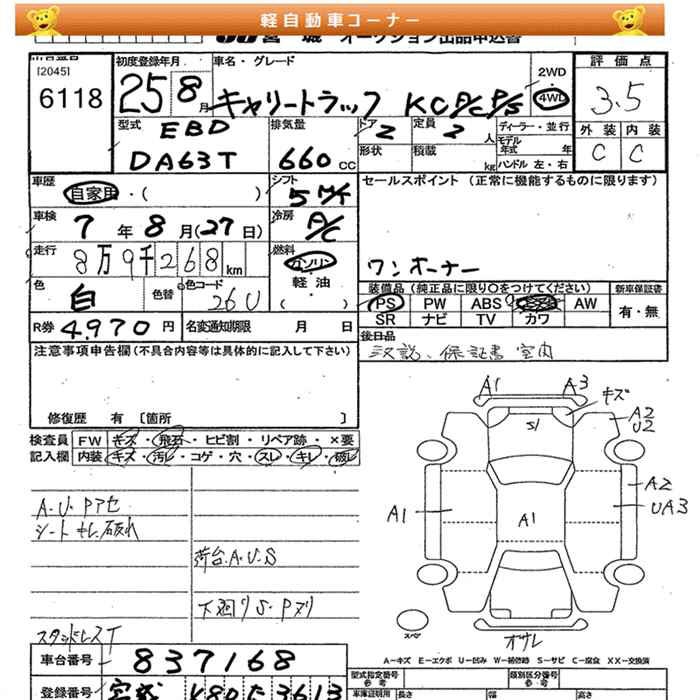 軽自動車コーナー
宮城 オークション出品申込書
[2045]
6118
初度登録年月
25 8月
車名・グレード
キャリートラック KC P/C P/S
2WD
4WD
評価点
3.5
外装 内装
C C
型式
EBD
DA63T
排気量
660 CC
ドア
2
定員
2 人
形状
積載
kg
ディーラー・並行
モデル年式 年
ハンドル 左・右
車歴
自家用・( )
シフト
5 M/T
セールスポイント (正常に機能するものに限ります)
ワンオーナー
車検
7年 8月(27日)
冷房
A/C
走行
8万9千268km
燃料
ガソリン
軽油
( )
色
白
色替
色コード
26U
装備品(純正品に限り○をつけてください)
PS PW ABS AW
SR ナビ TV カワ
新車保証書
有・無
R券 4,970円
名変通知期限 月 日
後日品
取説、保証書 室内
注意事項申告欄(不具合内容等は具体的に記入して下さい)
修復歴 有 [箇所 ]
検査員記入欄
FW キズ・飛石・ヒビ割・リペア跡・×要
内装 キズ・汚レ・コゲ・穴・スレ・キレ・破レ
A.U.Pアセ
シート キレ.破れ
荷台.A.U.S
下廻りS.Pヌリ
スタッドレスT
A1 A3 キズ
S1
A2
U2
A2
UA3
A1
A1
オサレ
スペア
A-キズ E-エクボ U-凹み W-補修跡 S-サビ C-腐食 XX-交換済
車台番号 837168
登録番号 宮城
型式指定番号
参考
類別区分番号
参考
車庫証明用 長さ 幅 高さ